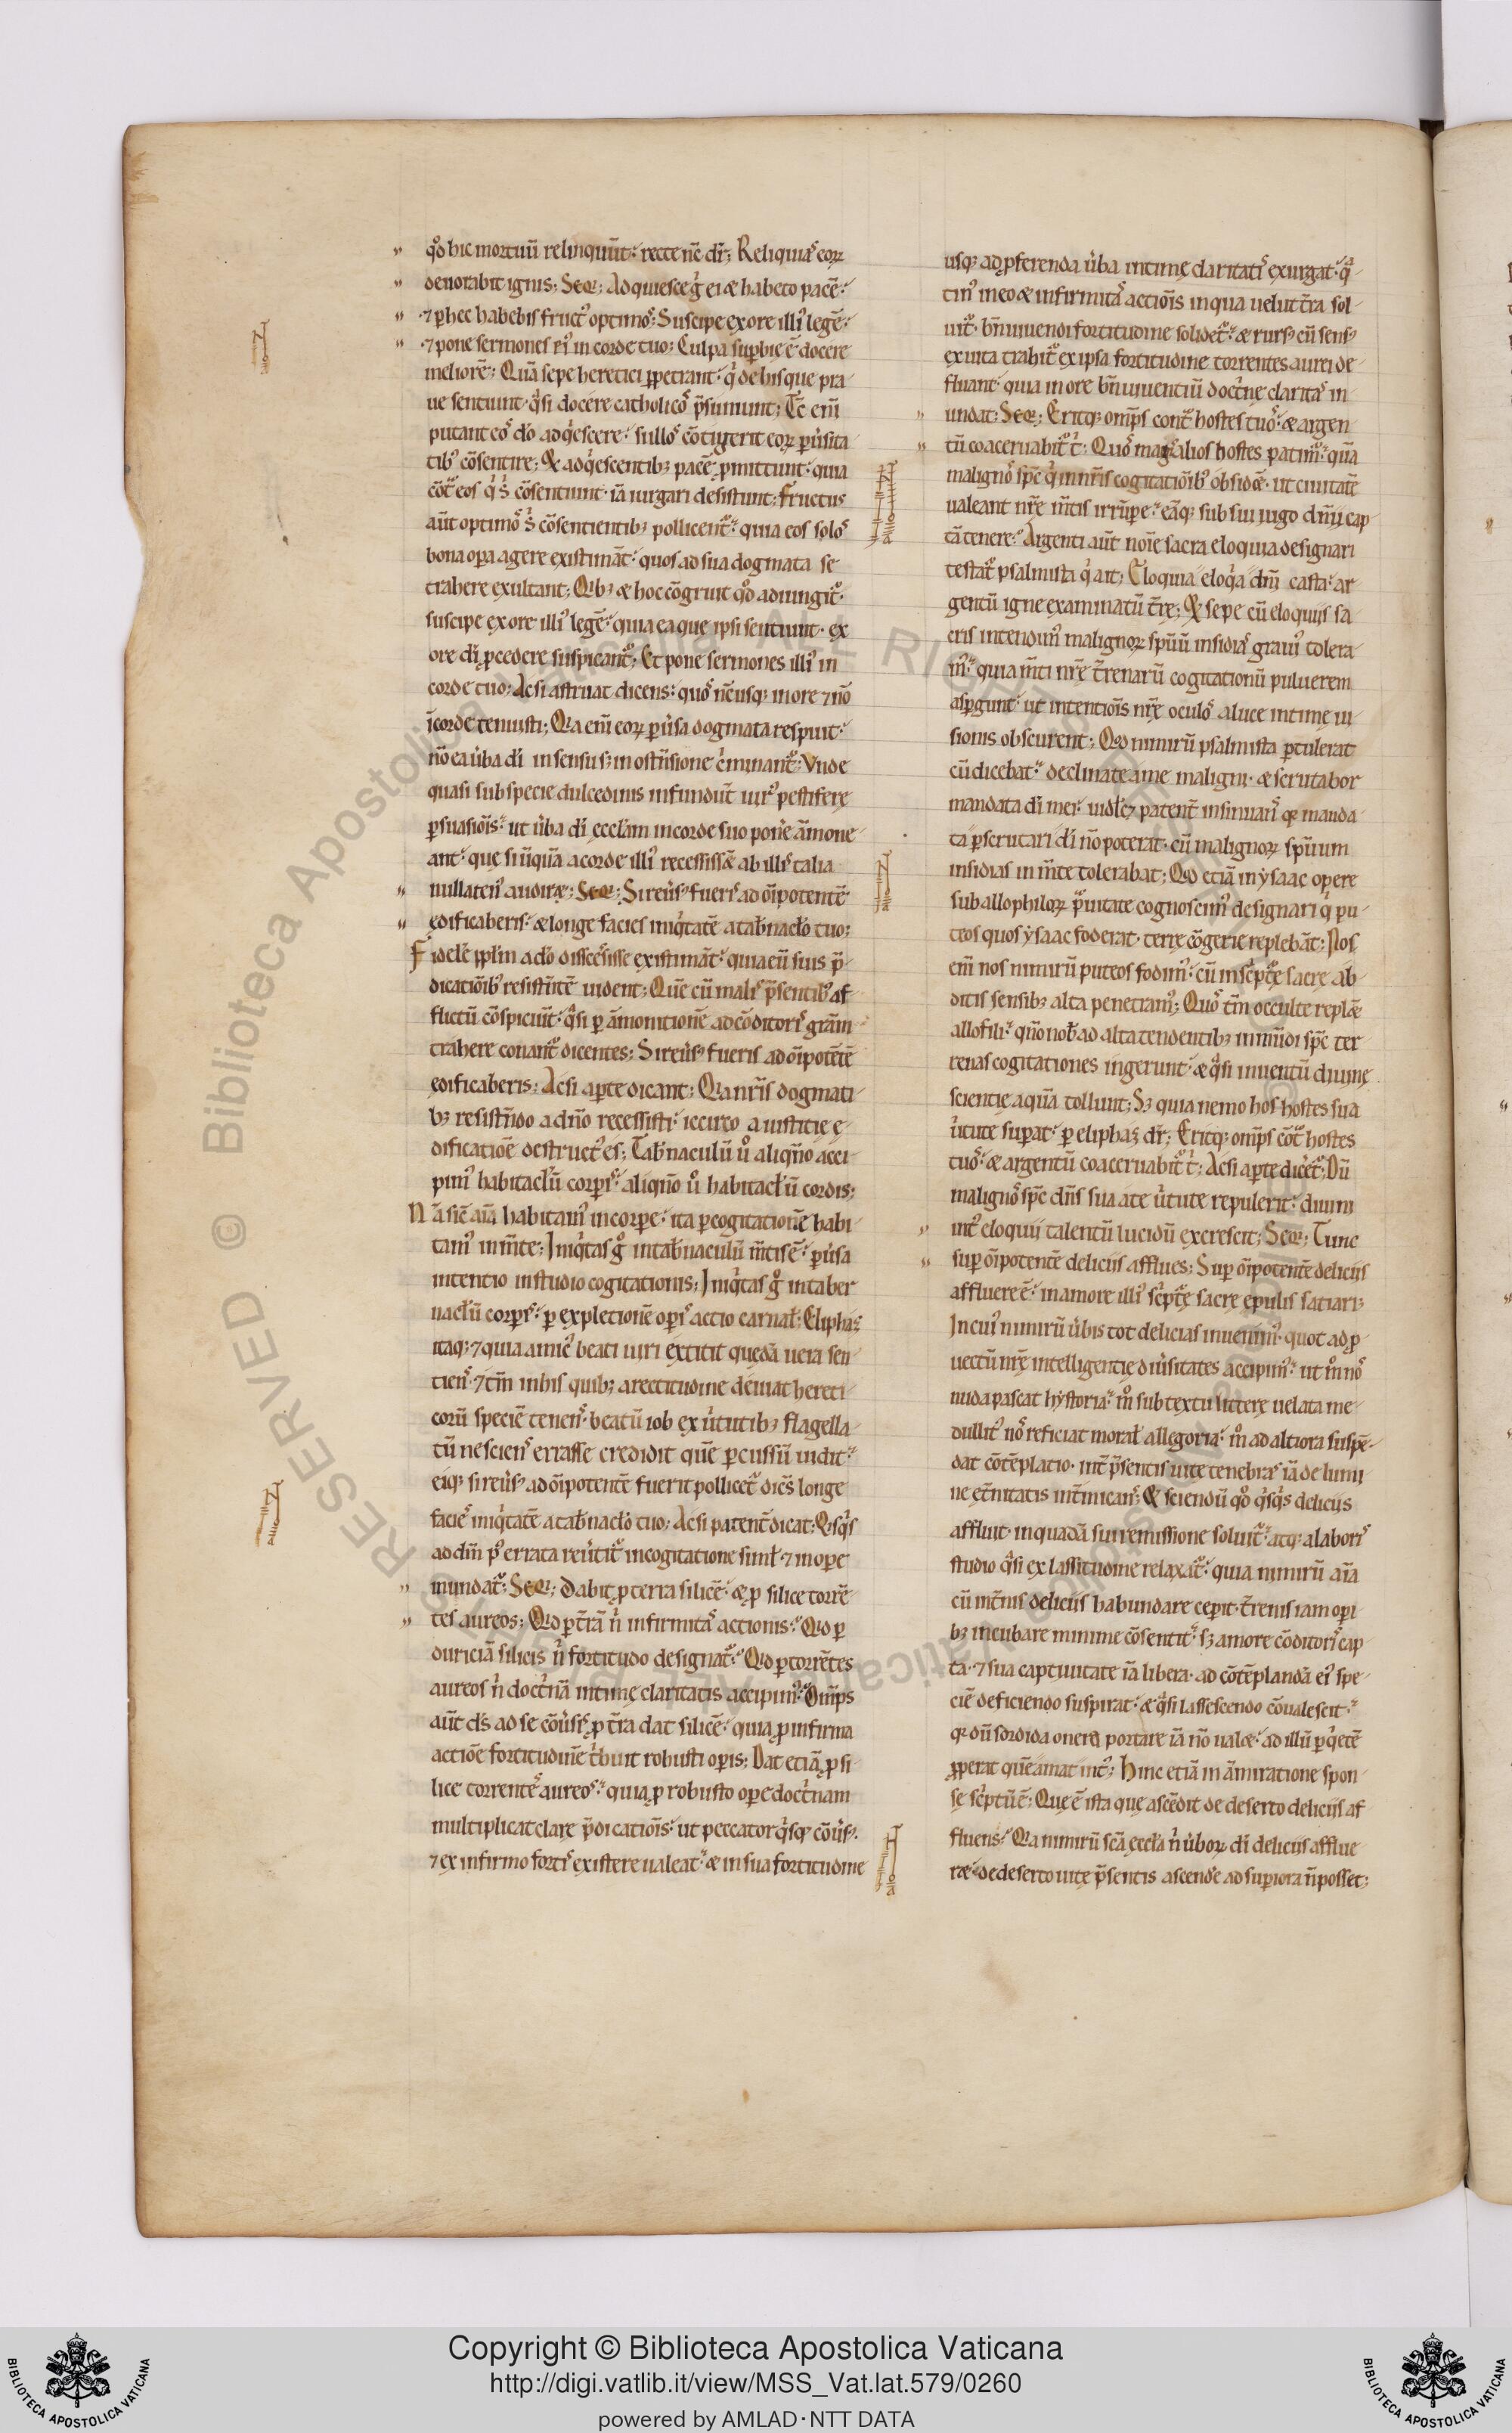 qd̊ hic mortuū relinquūt. recte nc̄ dr̄; Reliquias eoꝝ
deuorabit ignis; Seqr; Adquiesce g̊ ei & habeto pacē.
⁊ ꝑ hec habebis fruct᷒ optimos; Suscipe ex ore illi᷒ legē.
⁊ pone sermones ei᷒ in corde tuo; Culpa suꝑbie ē docere
meliorē; Quā sepe heretici ꝑpetrant. qͥ de his que pra
ue sentiunt. qͣsi docere catholicos p̄sumunt; Tc̄ eni̅
putant eos dō adqͥescere. si illos cōtigerit eoꝝ ꝑuͥsita
tib᷒ cōsentire; Et adqͥescentibꝫ pacē ꝓmittunt. quia
cōt eos qͥ sͥ cōsentiunt iā iurgari desistunt; Fructus
aūt optimos sͥ cōsentientibꝫ pollicent᷑. quia eos solos
bona oꝑa agere existimāt. quos ad sua dogmata se
trahere exultant; Qͥbꝫ & hoc cōgruit qd̊ adiungit᷑.
suscipe ex ore illi᷒ legē. quia ea que ipsi sentiunt. ex
ore di̅ ꝓcedere suspicant᷑; Et pone sermones illi᷒ in
corde tuo; Ac si astruat dicens. quos nc̄usqꝫ in ore ⁊ nō
i̅ corde tenuisti; Qͥa eni̅ eoꝝ ꝑuͥsa dogmata respuit.
nō ea uͥba di̅ in sensu sꝫ in ostn̅sione cͥminant᷑; Vnde
quasi sub specie dulcedinis infundūt uir᷒ pestifere̜
ꝑsuasiōis. ut uͥba di̅ ęcclām in corde suo ponͥe āmone
ant. que si uͥquā a corde illi᷒ recessissent ab illis talia
nullaten᷒ audiret; Seqr; Si reuͥs᷒ fueris ad oīpotentē
ędificaberis. & longe facies iniqͥtatē a tab̄nacl̄o tuo;
Fidelē ppl̅m a dō discēsisse existimāt. quia eū suis p̄
dicatiōib᷒ resistn̅tē uident; Quē cū malis p̄sentib᷒ af
flictū cōspiciūt. qͣsi ꝑ āmonitionē ad cōditoris grām
trahere conant᷑ dicentes; Si reuͥs᷒ fueris ad oīpotētē
ędificaberis; Ac si aꝑte dicant; Qͥa nr̄is dogmati
bꝫ resistn̅do a dn̅o recessisti. iccirco a iusticie ę
dificatiōe destruct᷒ es; Tab̄naculū uͦ aliqn̅o acci
pim᷒ habitacl̄ū corꝑis. aliqn̅o uͦ habitacl̄ū cordis;
Nā sic̄ aīa habitam᷒ in corꝑe. ita ꝑ cogitationē habi
tam᷒ in mn̅te; Iniqͥtas g̊ in tab̄naculū mn̅tis ē. ꝑuͥsa
intentio in studio cogitationis; Iniqͥtas g̊ in taber
nacl̄ū corꝑis. ꝑ expletionē oꝑis actio carnal̄; Eliphaz
itaqꝫ ⁊ quia amic᷒ beati uiri extitit quedā uera sen
tiens. ⁊ tn̅ in his quibꝫ a rectitudine deuiat hereti
corū speciē tenens. beatū iob ex uͥtutibꝫ flagella
tū nesciens errasse credidit quē ꝑcussū uidit.
eiqꝫ si reuͥs᷒ ad oīpotentē fuerit pollicet᷑ dicēs longe
facies iniqͥtatē a tab̄nacl̄o tuo; Ac si patent̄ dicat; Qͥsqͥs
ad dn̅i p᷒ errata reuͥtit᷑ in cogitatione siml̄ ⁊ in oꝑe
mundat᷑; Seqr; Dabit ꝓ terra silicē. & ꝓ silice torrē
tes aureos; Qͥd ꝑ tr̄ā nͥ infirmitas actionis. Qͥd ꝑ
duriciā silicis nͥ fortitudo designat᷑. Qͥd ꝑ torrētes
aureos nͥ doctͥnā intime̜ claritatis accipim᷒. Omn̅ps
aūt ds̄ ad se cōuͥsis ꝓ tr̄ra dat silicē. quia ꝓ infirma
actiōe fortitudinē tͥbuit robusti oꝑis; Dat etiā ꝓ si
lice torrentes aureos. quia ꝓ robusto oꝑe doctͥnam
multiplicat clare p̄dicatiōis. ut peccator qͥsqꝫ cōuͥs᷒.
⁊ ex infirmo fortis existere ualeat. & in sua fortitudine
usqꝫ ad ꝓferenda uͥba intime̜ claritatis exurgat. qͣ
tin᷒ in eo & infirmitas actiōis in qua uelut tr̄ra sol
uit᷑. bn̅ uiuendi fortitudine solidet᷑. & rurs᷒ cū sens᷒
ex uita trahit᷑ ex ipsa fortitudine torrentes aurei de
fluant. quia in ore bn̅ uiuentiū doctͥne claritas in
undat; Seqr; Eritqꝫ omn̅ps cont̄ hostes tuos. & argen
tū coaceruabit᷑ tͥ; Quos magis alios hostes patim᷑. quā
malignos spc̄ qͥ in nr̄is cogitatiōib᷒ obsidēt. ut ciuitatē
ualeant nr̄ę mn̅tis irrūpe. eāqꝫ sub sui iugo dn̅ii cap
tā tenere. Argenti aūt noīe sacra eloquia designari
testat᷑ psalmista qͥ ait; Eloquia eloqͥa dn̅i casta. ar
gentū igne examinatū tr̄rę; Et sepe cū eloquiis sa
cris intendim᷒ malignoꝝ spūū insidias grauius tolera
m᷒. quia mn̅ti nr̄ę tr̄renarū cogitationū puluerem
aspgunt. ut intentiōis nr̄ę oculos a luce intime̜ ui
sionis obscurent; Qͥd nimirū psalmista ꝑtulerat
cū dicebat. declinate a me maligni. & scrutabor
mandata di̅ mei. uidelꝫ patent̄ insinuans quia manda
ta ꝑscrutari di̅ nō poterat. cū malignoꝝ spūum
insidias in mn̅te tolerabat; Qͥd etiā in ẏsaac opere
sub allophiloꝝ pͣuitate cognoscim᷒ designari qͥ pu
teos quos ẏsaac foderat. terrę cōgerie replebāt; Hos
eni̅ nos nimirū puteos fodim᷒. cū in scͥptę sacre ab
ditis sensibꝫ alta penetram᷒; Quos tn̅ occulte replēt
allofili. qn̅o nob̄ ad alta tendentibꝫ inmūdi spc̄ ter
renas cogitationes ingerunt. & qͣsi inuentū diuine̜
scientię aquā tollunt; Sꝫ quia nemo hos hostes sua
uͥtute suꝑat. ꝑ eliphaz dr̄; Eritqꝫ omn̅ps cōt᷑ hostes
tuos. & argentū coaceruabit᷑ tͥ; Ac si aꝑte dicēt᷑; Dū
malignos spc̄ dn̅s sua a te uͥtute repulerit. diuini
int̄ eloquii talentū lucidū excrescit; Seqr; Tunc
suꝑ oīpotentē deliciis afflues; Suꝑ oīpotentē deliciis
affluere ē. in amore illi᷒ scͥptę sacre epulis satiari;
In cui᷒ nimirū uͥbis tot delicias inuenim᷒. quot ad ꝓ
uectū nr̄ę intelligentię diuͥsitates accipim᷒. ut m̊ nos
nuda pascat hẏstoria. m̊ sub textu litterę uelata me
dullit᷒ nos reficiat moral̄ allegoria. m̊ ad altiora suspē
dat cōtēplatio. int̄ p̄sentis uitę tenebras iā de lumi
ne ęt̄nitatis int̄micans; Et sciendū qd̊ qͥsqͥs deliciis
affluit. in quadā sui remissione soluit᷑. atqꝫ a laboris
studio qͣsi ex lassitudine relaxat᷑. quia nimirū aīa
cū int̄nis deliciis habundare cepit. tr̄renis iam oꝑi
bꝫ incubare minime cōsentit. sꝫ amore cōditoris cap
ta. ⁊ sua captiuitate iā libera. ad cōtēplandā ei᷒ spe
ciē deficiendo suspirat. & qͣsi lassescendo cōualescit.
quia dū sordida onera portare iā nō ualet. ad illū ꝑ qͥetē
ꝓperat quē amat int᷒; Hinc etiā in āmiratione spon
sę scͥptū ē; Que ē ista que ascēdit de deserto deliciis af
fluens. Qͥa nimirū scā ęccl̄a nͥ uͥboꝝ di̅ deliciis afflue
ret. de deserto uitę p̄sentis ascendͤe ad suꝑiora n̄ posset;
Copyright © Biblioteca Apostolica Vaticana
http://digi.vatlib.it/view/MSS_Vat.lat.579/0260
powered by AMLAD·NTT DATA